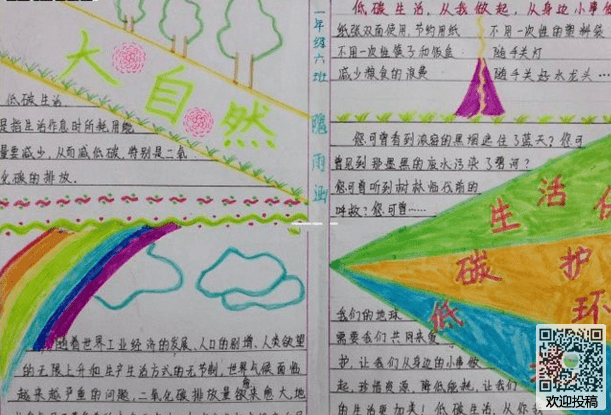 大自然
低碳生活
是指生活作息时所耗用能
量要减少,从而减低碳,特别是二氧
化碳的排放。
随着世界工业经济的发展、人口的剧增、人类欲望
的无限上升和生产生活方式的无节制,世界气候面临
越来越严重的问题,二氧化碳排放量愈来愈大,地
一年级六班
雨涵
低碳生活,从我做起,从身边小事做
纸张双面使用,节约用纸
不用一次性的塑料袋
不用一次性筷子和饭盒
随手关灯
减少粮食的浪费
随手关好水龙头…
您可曾看到浓密的黑烟遮住了蓝天?您可
曾见到那墨黑的废水污染了碧河?
您可曾听到树林临伐前的
呼救?您可曾……
生活
碳护
低环
我们的地球
需要我们共同来爱
护,让我们从身边的小事做
起,珍惜资源,降低能耗,让我们
的生活更加美
欢迎投稿